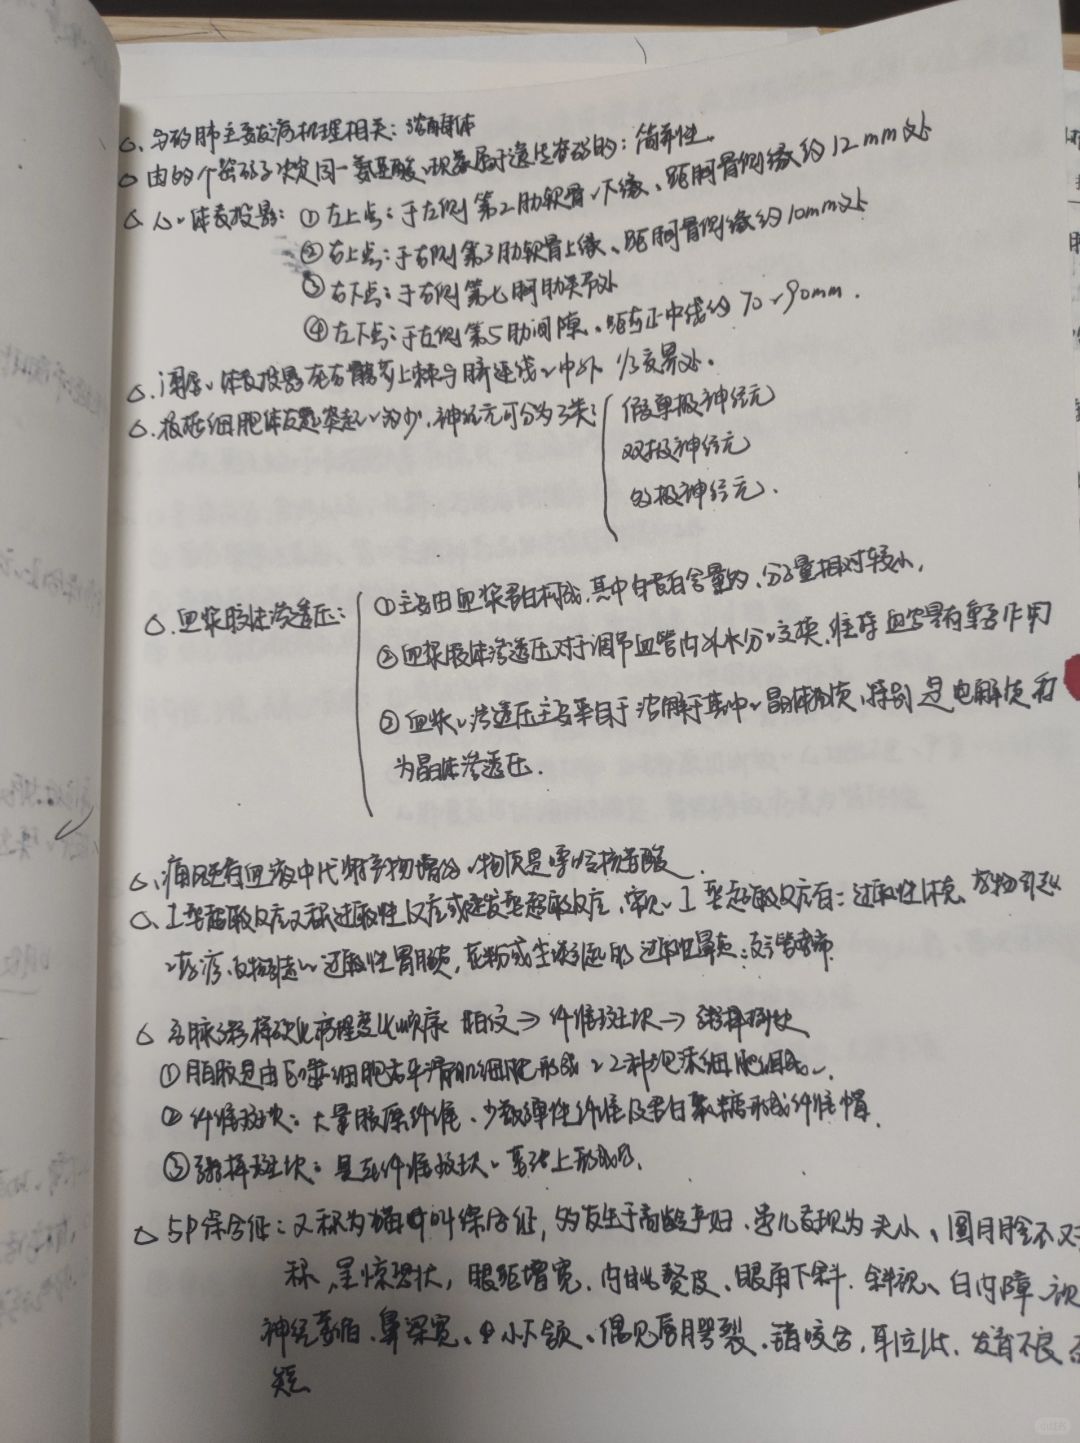 △、与矽肺主要发病机理相关：溶酶体
△ 由多个密码子决定同一氨基酸、现象属于遗传密码的：简并性。
△ 心、体表投影：①左上点：于左侧第2肋软骨、下缘、距胸骨侧缘约12mm处
②右上点：于右侧第3肋软骨上缘、距胸骨侧缘约10mm处
③右下点：于右侧第七胸肋关节处
④左下点：于左侧第5肋间隙、距正中线约70~90mm.
△、阑尾、体表投影在右髂前上棘与脐连线、中外1/3交界处.
△、根据细胞体发起突起、多少,神经元可分为3类:
假单极神经元
双极神经元
多极神经元.
△、血浆胶体渗透压：①主要由血浆蛋白构成,其中白蛋白含量多,分子量相对较小,
②血浆胶体渗透压对于调节血管内外水分、交换,维持血容量有重要作用
③血浆、渗透压主要来自于溶解于其中、晶体物质,特别是电解质称
为晶体渗透压.
△、痛风症者血液中代谢产物增多、物质是嘌呤核苷酸.
△、I型超敏反应又称过敏性反应或速发型超敏反应,常见、I型超敏反应有：过敏性休克、药物引起
、荨疹、食物引起、过敏性胃肠炎,花粉或尘埃引起的过敏性鼻炎、支气管哮喘.
△ 动脉粥样硬化病理变化顺序 脂纹→纤维斑块→粥样斑块
①脂纹是由巨噬细胞和平滑肌细胞形成、2种泡沫细胞组成、
②纤维斑块：大量胶原纤维、少数弹性纤维及蛋白聚糖形成纤维帽.
③粥样斑块：是在纤维斑块、基础上形成的.
△ 5P综合征：又称为猫叫综合征,多发生于高龄产妇、患儿表现为头小、圆月脸不对
称,呈惊恐状,眼距增宽、内眦赘皮、眼角下斜.斜视、白内障、视
神经萎缩、鼻梁宽、小下颌、偶见唇腭裂、错咬合,耳位低、发育不良